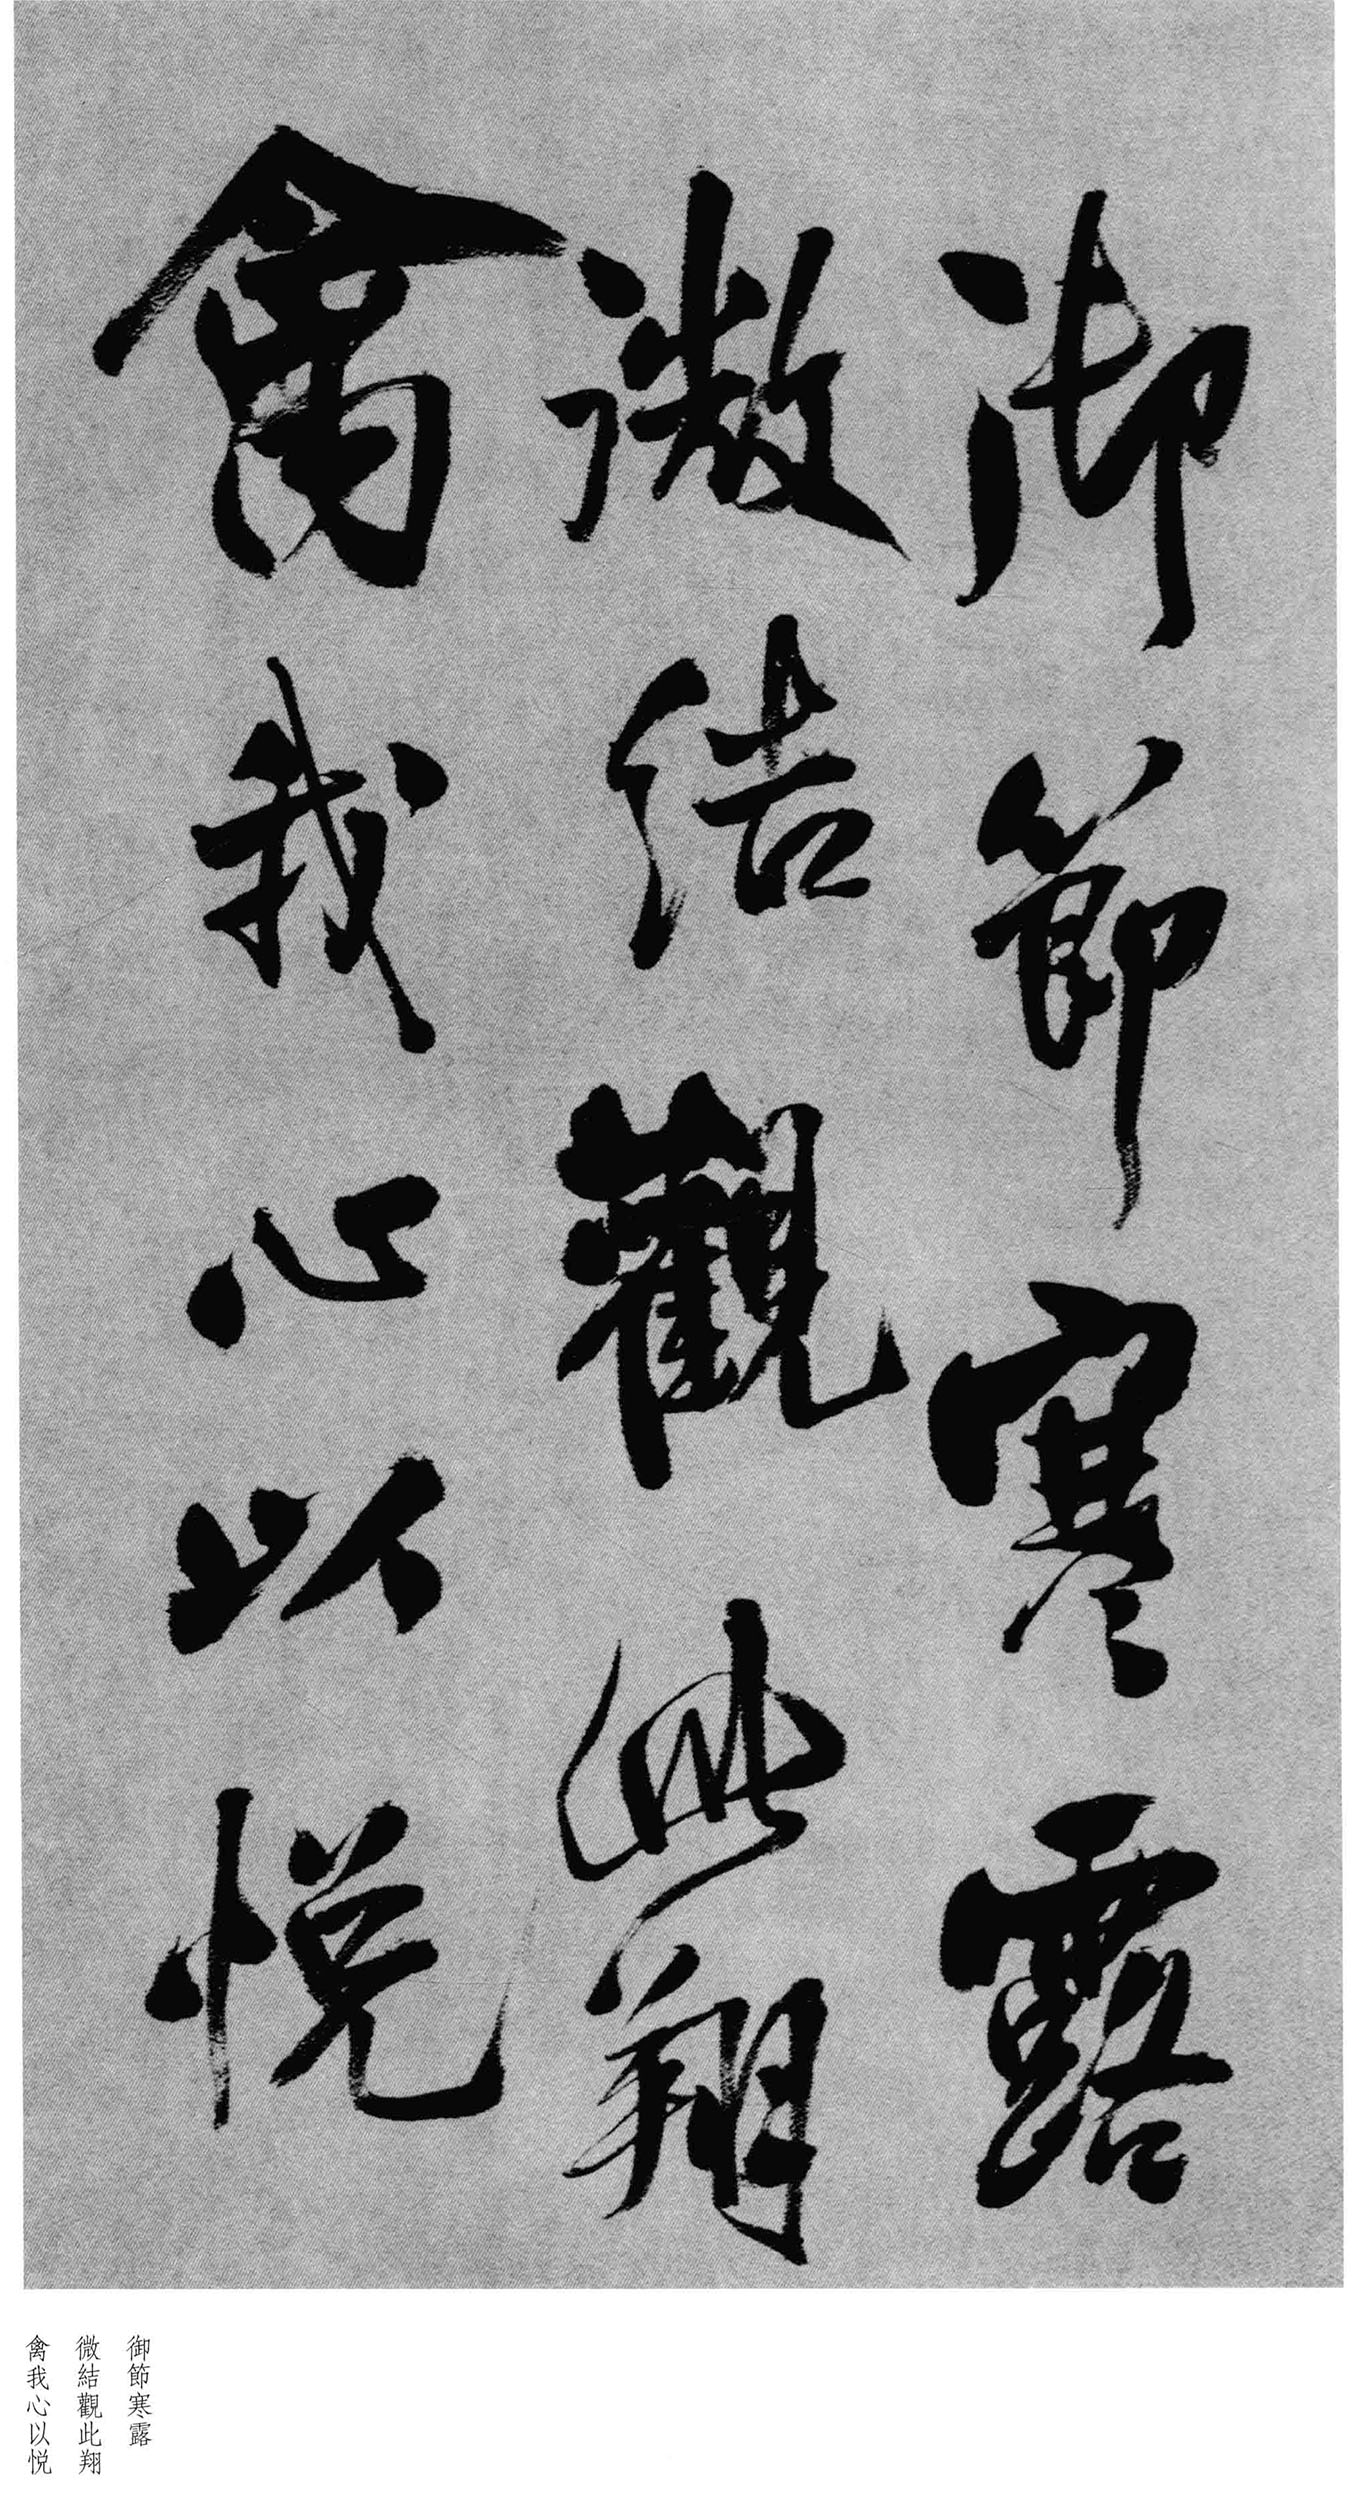 御節寒露
微結觀此翔
禽我心以悦
御節寒露
微結觀此翔
禽我心以悦